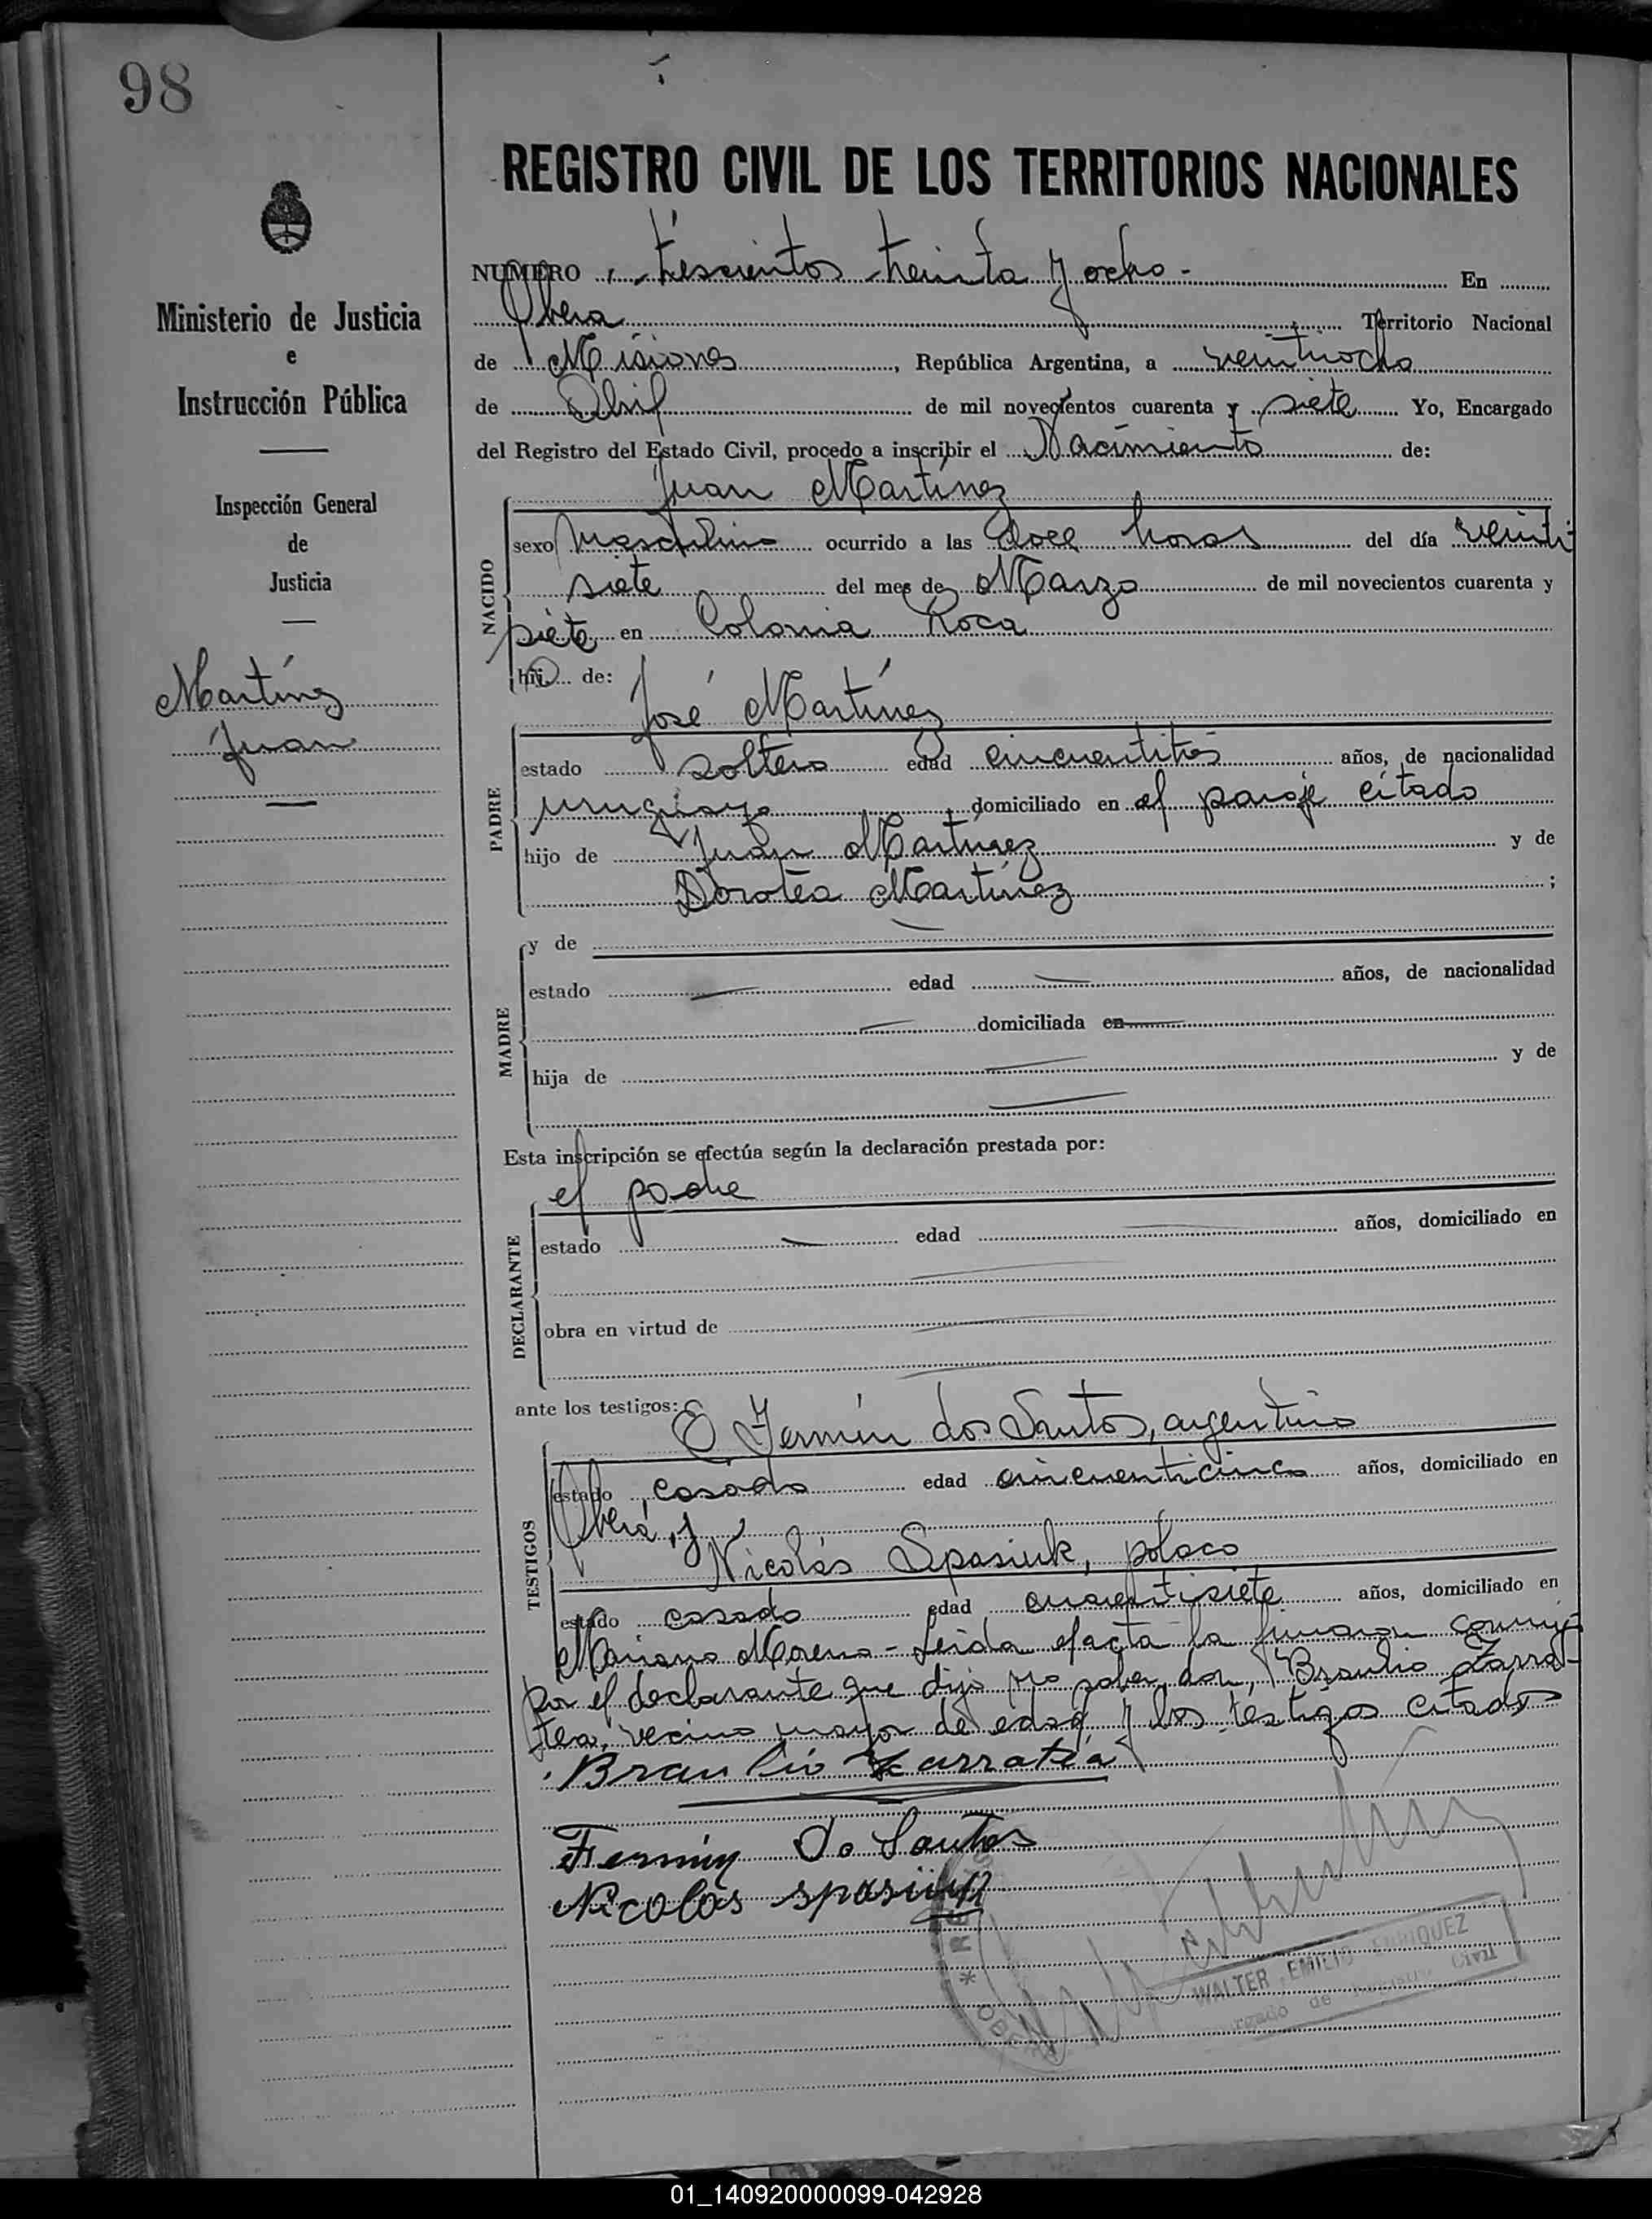 98
REGISTRO CIVIL DE LOS TERRITORIOS NACIONALES
Ministerio de Justicia
e
Instrucción Pública
Inspección General
de
Justicia
Martínez
Juan
NUMERO trescientos treinta y ocho - En
Obera Territorio Nacional
de Misiones, República Argentina, a veintiocho
de Abril de mil novecientos cuarenta y siete Yo, Encargado
del Registro del Estado Civil, procedo a inscribir el Nacimiento de:
Juan Martínez
NACIDO
sexo masculino ocurrido a las doce horas del día veinti
siete del mes de Marzo de mil novecientos cuarenta y
siete en Colonia Roca
hijo de:
José Martínez
PADRE
estado soltero edad cincuentitrés años, de nacionalidad
uruguayo domiciliado en el paraje citado
hijo de Juan Martínez y de
Dorotea Martínez ;
MADRE
y de
estado edad años, de nacionalidad
domiciliada en
hija de y de
Esta inscripción se efectúa según la declaración prestada por:
el padre
DECLARANTE
estado edad años, domiciliado en
obra en virtud de
ante los testigos:
Fermín dos Santos, argentino
TESTIGOS
estado casado edad cincuenticinco años, domiciliado en
Oberá, y
Nicolás Spasiuk, polaco
estado casado edad cuarentisiete años, domiciliado en
Mariano Moreno - Leída el acta la firmaron conmigo
por el declarante que dijo no saber, don Braulio Zarra-
tea, vecino mayor de edad y los testigos citados
Braulio Zarratea
Fermin Do Santos
Nicolás Spasiuk
WALTER EMILIO ENRIQUEZ
Registro Civil
01_140920000099-042928